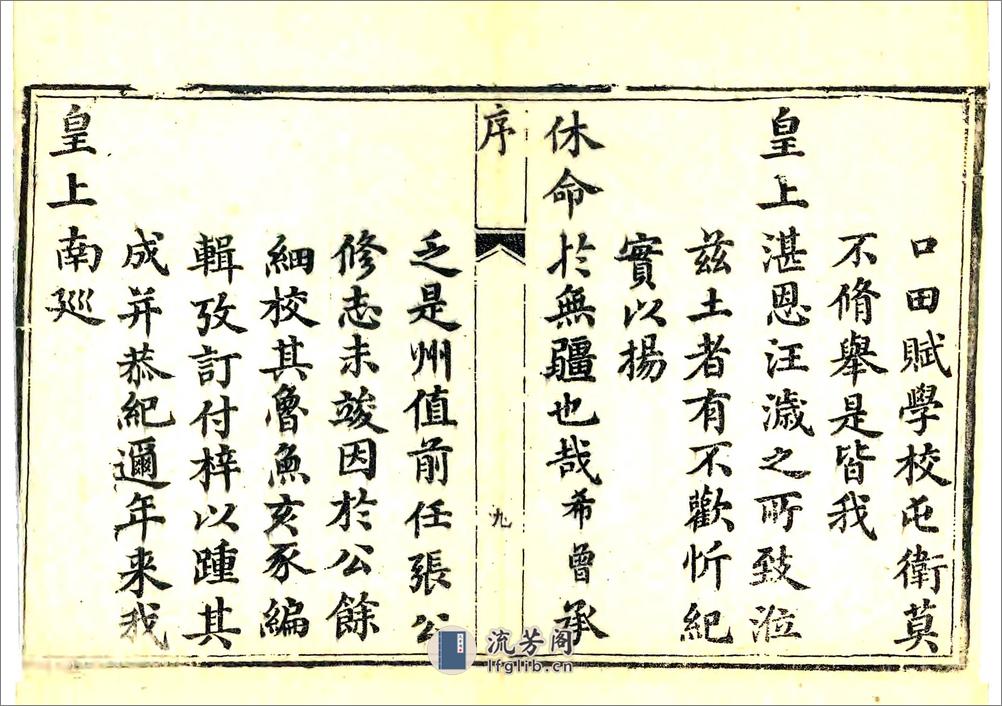 口田賦學校屯衛莫
不脩舉是皆我
皇上湛恩汪濊之所致涖
兹土者有不歡忻紀
實以揚
休命於無疆也哉希曾承
序
九
乏是州值前任張公
修志未竣因於公餘
細校其魯魚亥豕編
輯攷訂付梓以踵其
成并恭紀邇年来我
皇上南廵
流芳阁
lfglib.cn